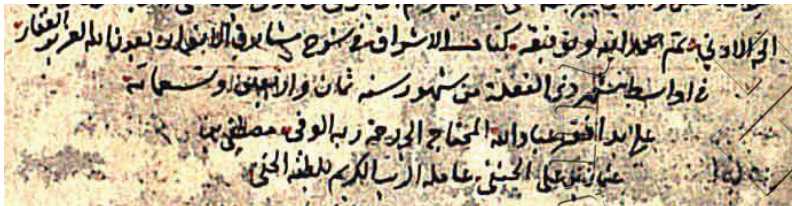 الى الادنى تم بحمد الله وتوفيقه كتاب الاشراق في شرح مشارق الانوار بعون الله العزيز الغفار
في اواسط شهر ذي القعدة من شهور سنه ثمان واربعين وتسعمائة
على يد افقر عباد الله المحتاج الى رحمة ربه الوفي مصطفى بن
عثمان بن علي الحنفي عامله الرب الكريم بلطفه الخفي